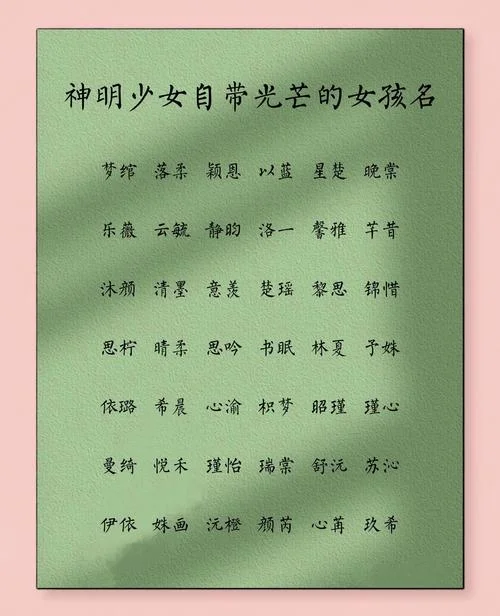 神明少女自带光芒的女孩名
梦绾 落柔 颖恩 以蓝 星楚 晚棠
乐薇 云毓 静昀 洛一 馨雅 芊昔
沐颜 清墨 意羡 楚瑶 黎思 锦惜
思柠 晴柔 思吟 书眠 林夏 予姝
依璐 希晨 心渝 枳梦 昭瑾 瑾心
曼绮 悦禾 瑾怡 瑞棠 舒沅 苏沁
伊依 姝画 沅橙 颜芮 心苒 玖希